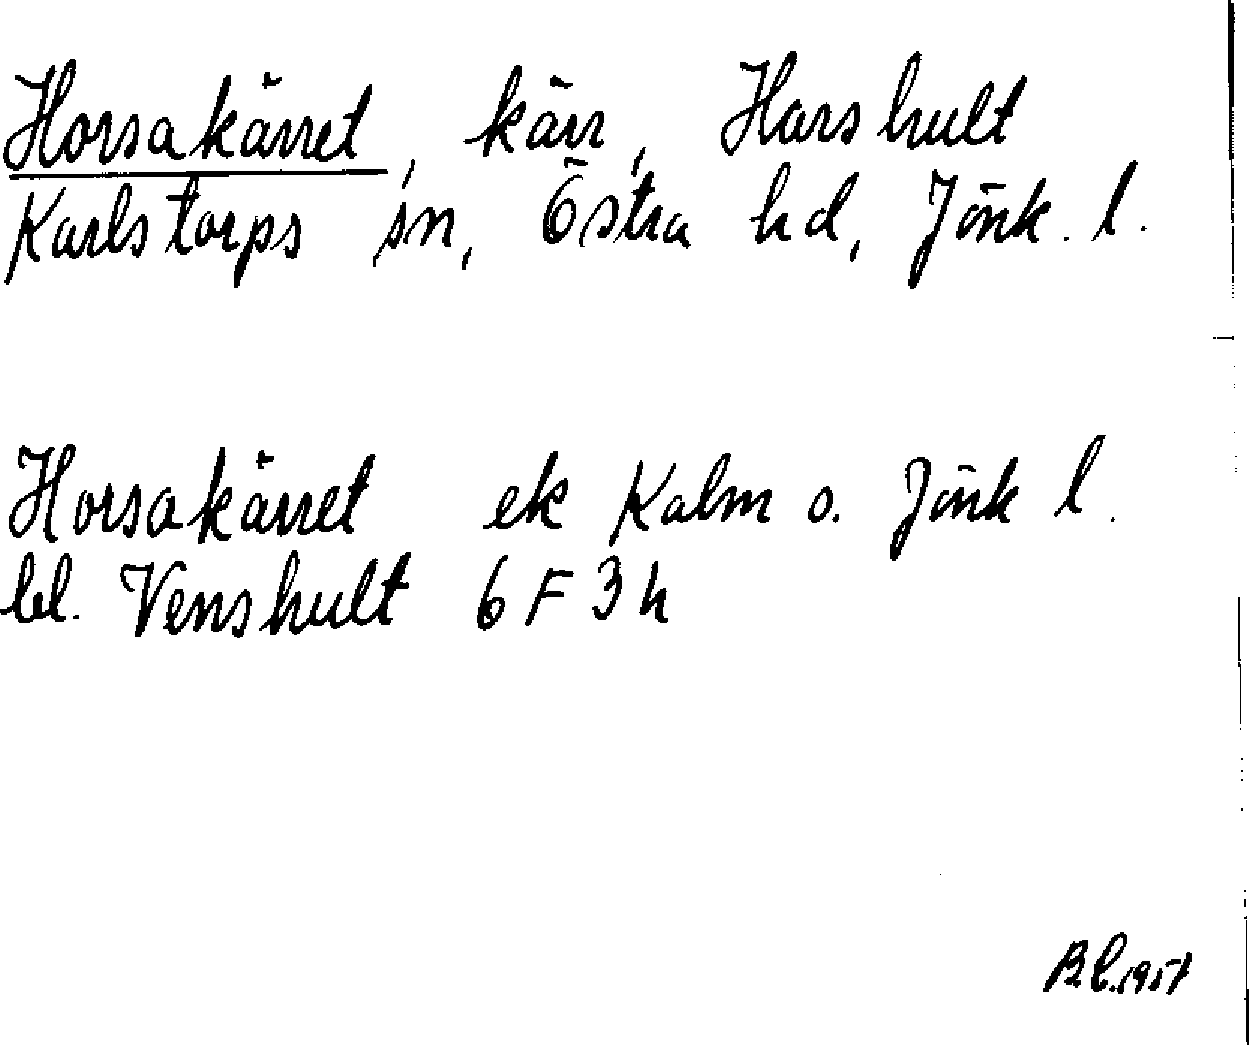 Horsakärret, kärr, Harshult
Karlstorps sn, Östra hd, Jönk. l.
Horsakärret ek Kalm o. Jönk l.
bl. Venshult 6 F 3 h
Bl. 1957